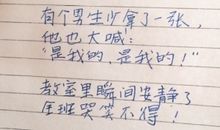 有个男生少拿了一张，
他也大喊：
“是我的，是我的！”
教室里瞬间安静了
全班哭笑不得！